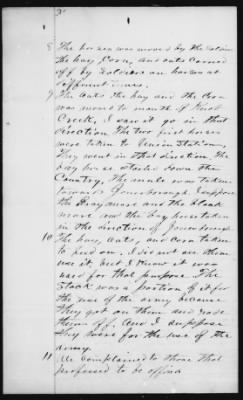 3
8 The horses was moved by the soldiers
the hay, Corn, and oats carried
off by Soldiers on horses at
different times.
9 The oats the hay and the Corn
was moved to mouth of Knob
Creek, I saw it go in that
direction The two first horses
were taken to Union Station,
They went in that direction. The
bay horse back down the
Country, The mule was taken
towards Jonesborough, I suppose
the Bray mare and the black
mare and the bay horse taken
in the direction of Jonesborough
10 The hay, oats, and corn taken
to feed on, I did not see them
use it, but I know it was
used for that purpose. The
Stock was a portion of it for
the use of the army because
they got on them and rode
them off, and I suppose
they were for the use of the
army.
11 We complained to those that
professed to be office